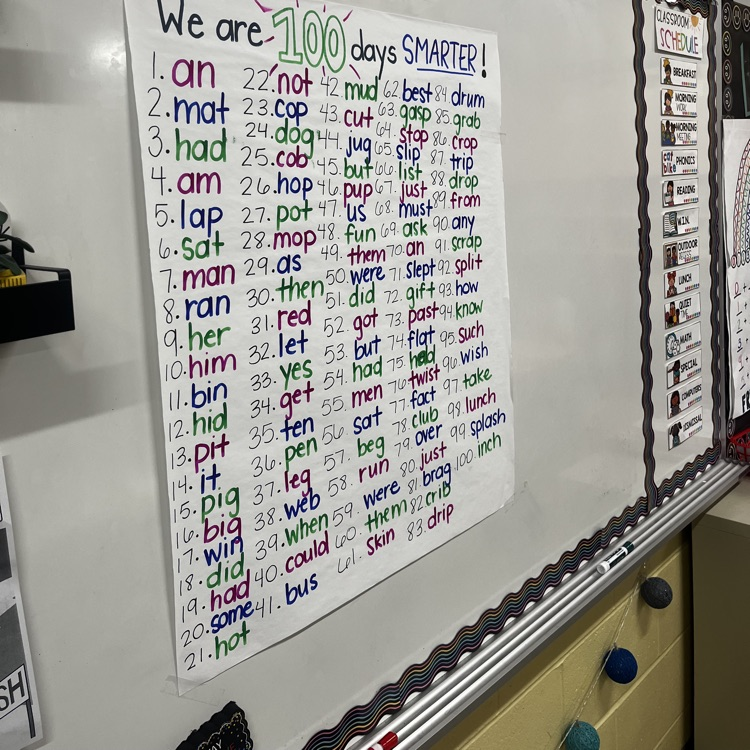 We are 100 days SMARTER!
1. an
2. mat
3. had
4. am
5. lap
6. sat
7. man
8. ran
9. her
10. him
11. bin
12. hid
13. pit
14. it
15. pig
16. big
17. win
18. did
19. had
20. some
21. hot
22. not
23. cop
24. dog
25. cob
26. hop
27. pot
28. mop
29. as
30. then
31. red
32. let
33. yes
34. get
35. ten
36. pen
37. leg
38. web
39. when
40. could
41. bus
42. mud
43. cut
44. jug
45. but
46. pup
47. us
48. fun
49. them
50. were
51. did
52. got
53. but
54. had
55. men
56. sat
57. beg
58. run
59. were
60. them
61. skin
62. best
63. gasp
64. stop
65. slip
66. list
67. just
68. must
69. ask
70. an
71. slept
72. gift
73. past
74. flat
75.
76. twist
77. fact
78. club
79. over
80. just
81. brag
82. crib
83. drip
84. drum
85. grab
86. crop
87. trip
88. drop
89. from
90. any
91. scrap
92. split
93. how
94. know
95. such
96. wish
97. take
98. lunch
99. splash
100. inch
CLASSROOM
SCHEDULE
BREAKFAST
MORNING
WORK
MORNING
MEETING
PHONICS
READING
W.I.N.
OUTDOOR
RECESS
LUNCH
QUIET
TIME
MATH
SPECIAL
COMPUTERS
DISMISSAL
SH